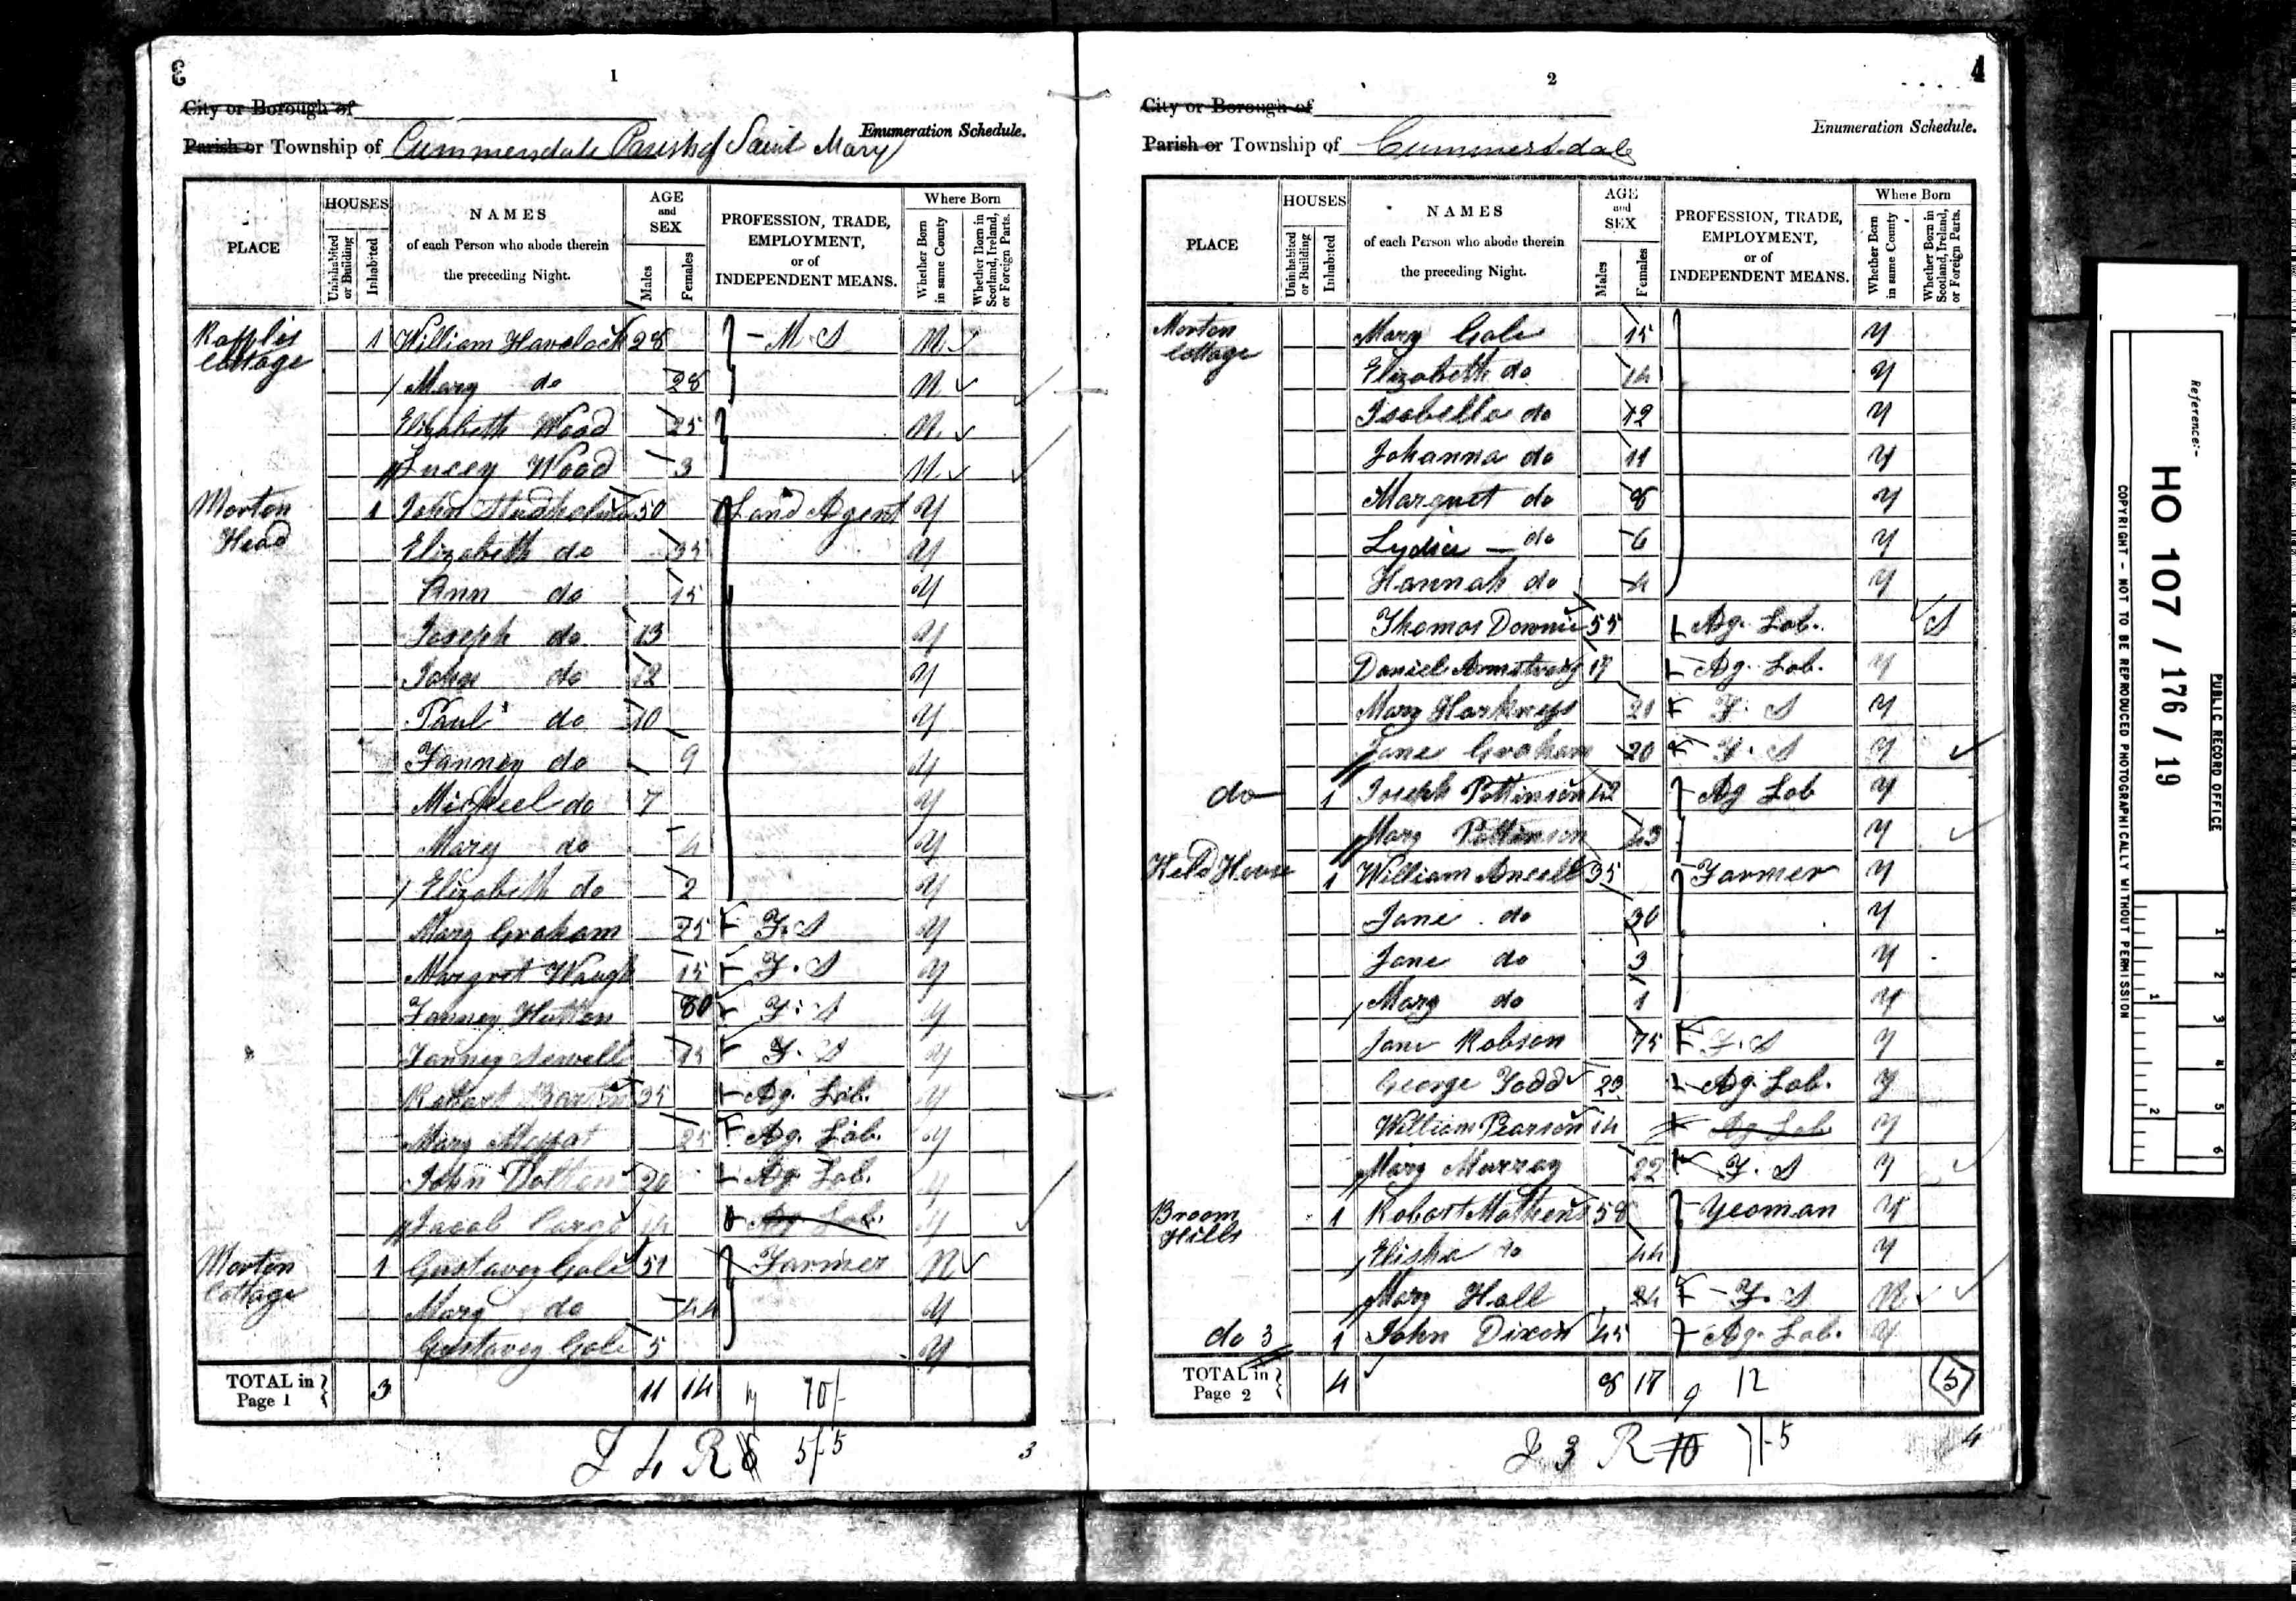 3
1
City or Borough of
Enumeration Schedule.
Parish or Township of Cummersdale Parish of Saint Mary
PLACE
HOUSES
Uninhabited or Building
Inhabited
NAMES
of each Person who abode therein
the preceding Night.
AGE
and
SEX
Males
Females
PROFESSION, TRADE,
EMPLOYMENT,
or of
INDEPENDENT MEANS.
Where Born
Whether Born in same County
Whether Born in Scotland, Ireland, or Foreign Parts.
Cottage 1 William Havelock 28 M S N
Mary do 28 N
Elizabeth Wood 25 N
Lucey Wood 3 N
Morton Head 1 John Studholme 50 Land Agent Y
Elizabeth do 35 Y
Ann do 15 Y
Joseph do 13 Y
John do 12 Y
Paul do 10 Y
Fanney do 9 Y
Micheel do 7 Y
Mary do 4 Y
Elizabeth do 2 Y
Mary Graham 25 F. S Y
Margret Waugh 15 F. S Y
Fanney Hutton 80 F. S Y
Fanney Sewell 15 F. S Y
Robert 35 Ag. Lab. Y
Mary Moffat 25 Ag. Lab. Y
John 20 Ag. Lab. Y
Jacob Cargo 14 Ag. Lab. Y
Morton Cottage 1 Gustavey Gale 51 Farmer N
Mary do 44 Y
Gustavey Gale 5 Y
TOTAL in Page 1 3 11 14 70/-
F 4 R 5/-5
3
4
2
City or Borough of
Enumeration Schedule.
Parish or Township of Cummersdale
PLACE
HOUSES
Uninhabited or Building
Inhabited
NAMES
of each Person who abode therein
the preceding Night.
AGE
and
SEX
Males
Females
PROFESSION, TRADE,
EMPLOYMENT,
or of
INDEPENDENT MEANS.
Where Born
Whether Born in same County
Whether Born in Scotland, Ireland, or Foreign Parts.
Morton Cottage Mary Gale 15 Y
Elizabeth do 14 Y
Isabella do 12 Y
Johanna do 11 Y
Margret do 8 Y
Lydia do 6 Y
Hannah do 4 Y
Thomas Downie 55 Ag. Lab. S
Daniel Armstrong 17 Ag. Lab. Y
Mary Harkness 21 F. S Y
Jane Graham 20 F. S Y
do 1 Joseph Pattinson 42 Ag Lab Y
Mary Pattinson 43 Y
House 1 William 35 Farmer Y
Jane do 30 Y
Jane do 3 Y
Mary do 1 Y
Jane Robson 75 F. S Y
George Todd 23 Ag. Lab. Y
William Pearson 14 Ag Lab Y
Mary Murray 22 F. S Y
Broom Hills 1 Robert 58 Yeoman Y
Elisha do 44 Y
Mary Hall 24 F. S N
do 3 1 John Dixon 45 Ag. Lab. Y
TOTAL in Page 2 4 8 17 9 12 5
F 3 R 10 7/-5
4
PUBLIC RECORD OFFICE
Reference:-
HO 107 / 176 / 19
COPYRIGHT - NOT TO BE REPRODUCED PHOTOGRAPHICALLY WITHOUT PERMISSION
1 2 3 4 5 6
1 2